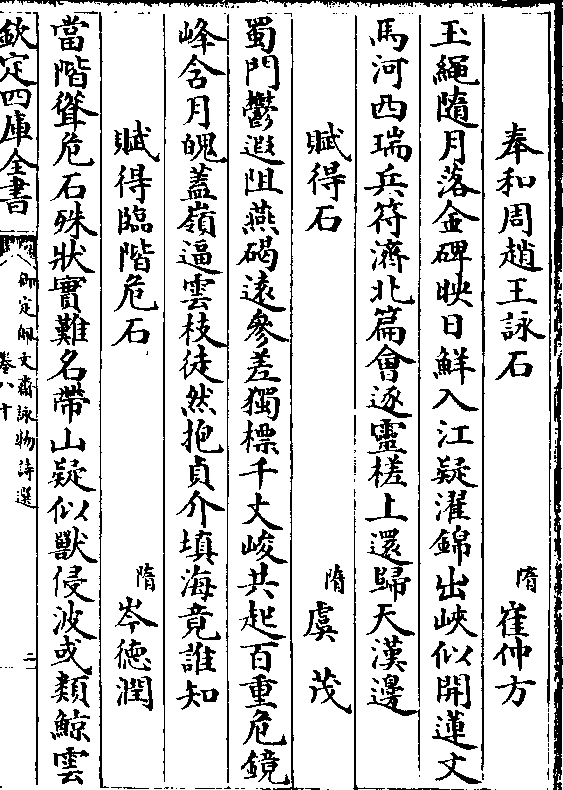 奉和周趙王詠石
隋崔仲方
玉繩隨月落金碑映日鮮入江疑濯錦出峽似開蓮文
馬河西瑞兵符濟北篇會逐靈槎上還歸天漢邊
賦得石
隋虞茂
蜀門鬱遐阻燕碣遠參差獨標千丈峻共起百重危鏡
峰含月魄蓋嶺逼雲枝徒然抱貞介填海竟誰知
賦得臨階危石
隋岑德潤
當階聳危石殊狀實難名帶山疑似獸侵波或類鯨雲
欽定四庫全書
御定佩文齋詠物詩選
卷八十
二